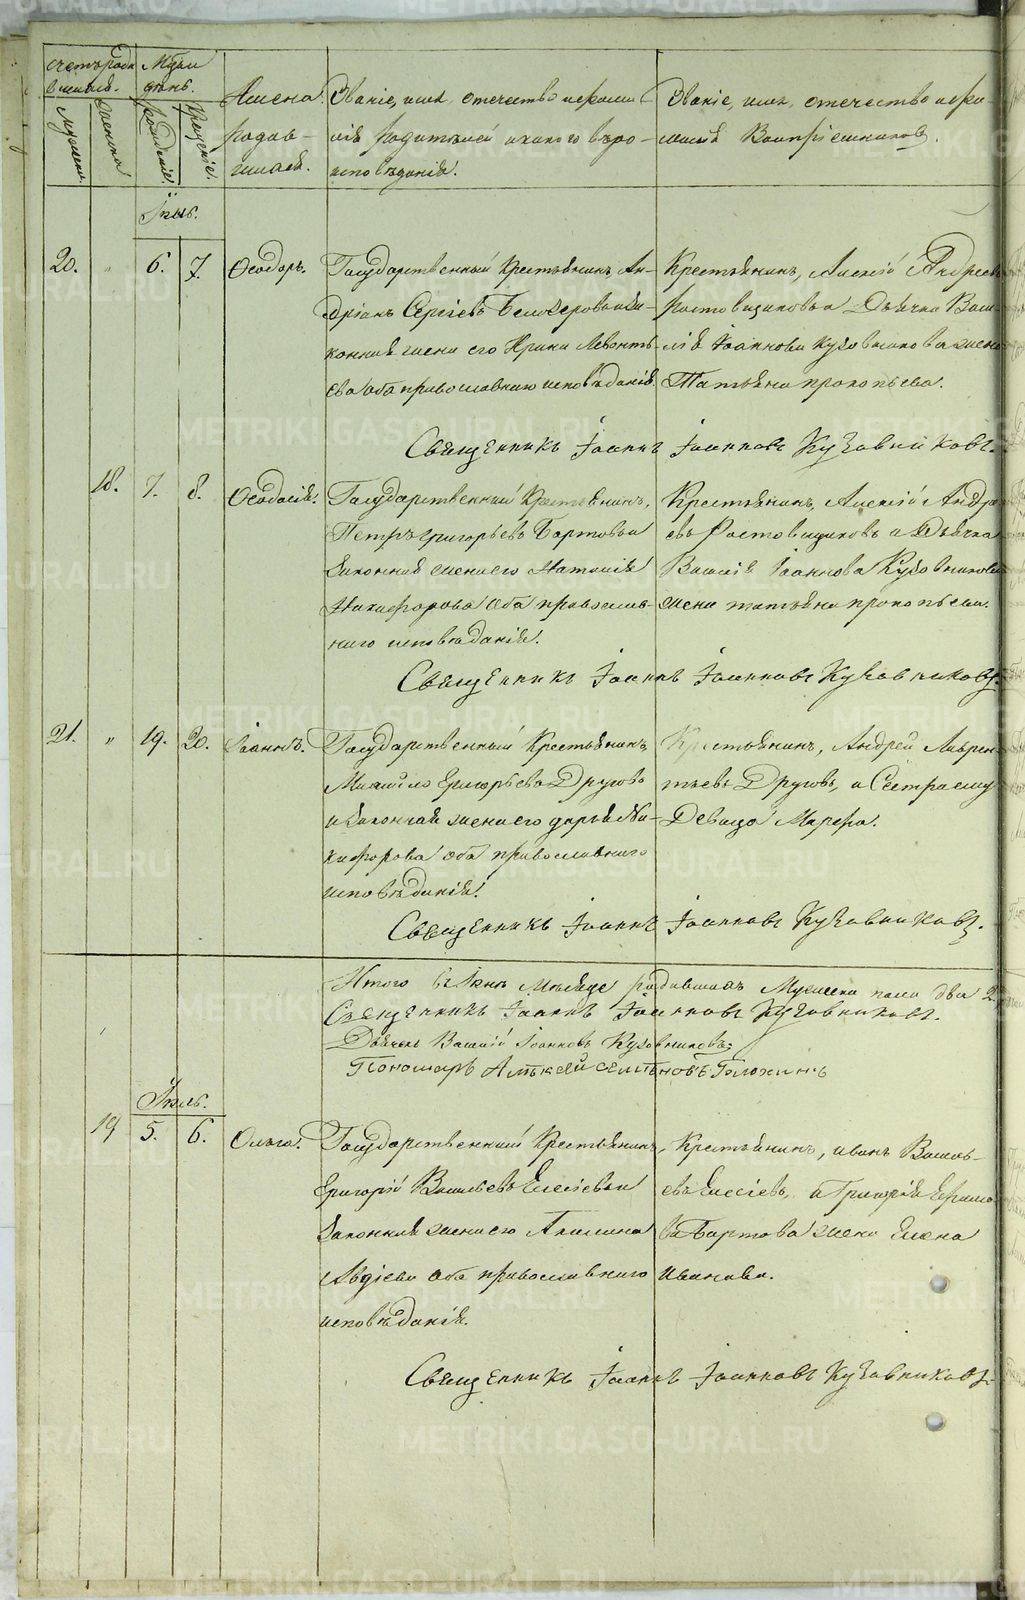 Счетъ родив Мѣсяцъ и
шихся. день.
Мужеска. Женска Рожденіе. Крещеніе.
Имена родив-
шихся.
Званіе, имя, отечество и фами-
лія родителей и какого вѣро-
исповѣданія.
Званіе, имя, отечество и фа-
милія Воспріемниковъ.
Іюнь.
20. " 6. 7. Ѳеодоръ.
Государственный Крестьянинъ Ан-
дріанъ Сергіевъ Белозеровъ и за-
конная жена его Ирина Леонть-
ева оба православнаго исповѣданія.
Крестьянинъ, Алексій Андреевъ
Ростовщиковъ и Дьячка Васи-
лія Іоаннова Кузовникова жена
Татьяна Прокопьева.
Священникъ Іоаннъ Іоанновъ Кузовниковъ.
18. 7. 8. Ѳеодосія.
Государственный Крестьянинъ,
Петръ Григорьевъ Бартовъ и
законная жена его Наталія
Никифорова оба православ-
наго исповѣданія.
Крестьянинъ, Алексій Андре-
евъ Ростовщиковъ и Дьячка
Василія Іоаннова Кузовникова
жена Татьяна Прокопьева.
Священникъ Іоаннъ Іоанновъ Кузовниковъ.
21. " 19. 20. Іоаннъ.
Государственный Крестьянинъ
Михайло Григорьевъ Друговъ
и законная жена его Дарья Ни-
кифорова оба православнаго
исповѣданія.
Крестьянинъ, Андрей Лаврен-
тьевъ Друговъ, и Сестра ему
Девица Марѳа.
Священникъ Іоаннъ Іоанновъ Кузовниковъ.
Итого въ Іюнѣ Мѣсяцѣ родившихъ Мужеска пола два 2
Священникъ Іоаннъ Іоанновъ Кузовниковъ.
Дьячекъ Василій Іоанновъ Кузовниковъ
Пономарь Алѣксѣй Семѣновъ
Іюль.
19 5. 6. Ольга.
Государственный Крестьянинъ,
Григорій Васильевъ Елесіевъ и
законная жена его Акилина
Авдіева оба православнаго
исповѣданія.
Крестьянинъ, Иванъ Василь-
евъ Елесіевъ, и Григорія Ефимо-
ва Бартова жена Елена
Иванова.
Священникъ Іоаннъ Іоанновъ Кузовниковъ.
METRIKI.GASO-URAL.RU